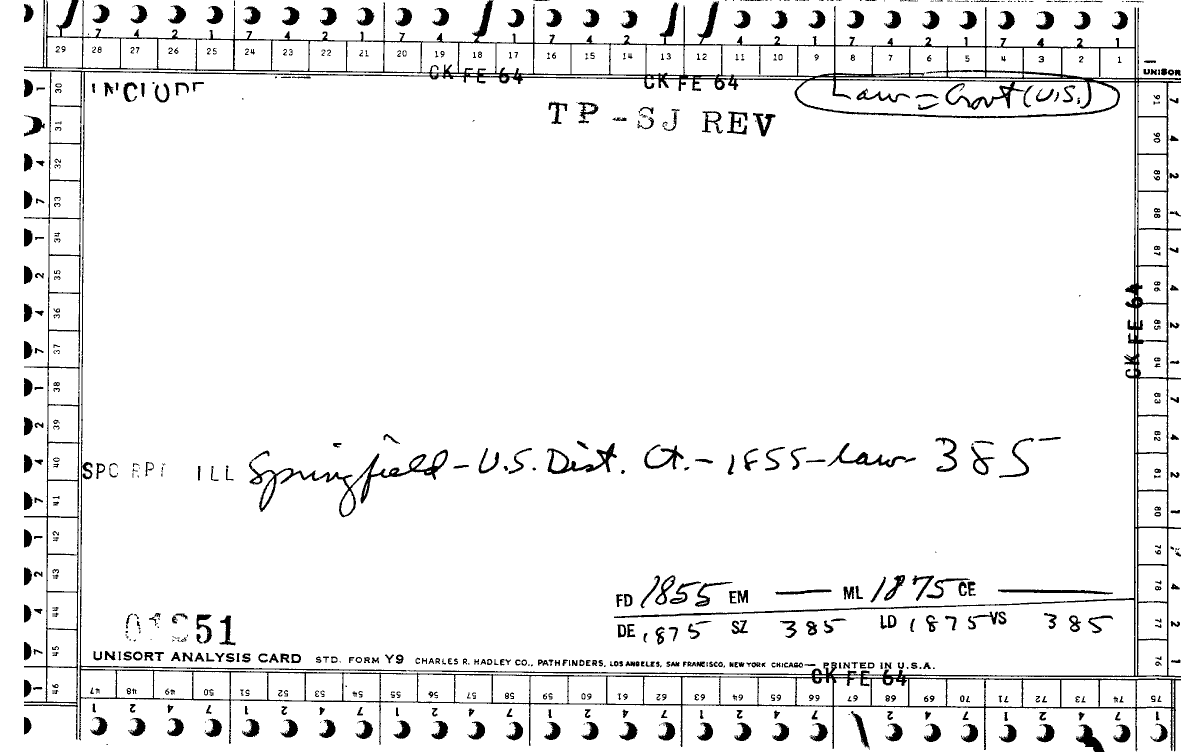 7 4 2 1 7 4 2 1 7 4 1 7 4 2 1 7 4 2 1 7 4 2 1
29 28 27 26 25 24 23 22 21 20 19 18 17 16 15 14 13 12 11 10 9 8 7 6 5 4 3 2 1
UNISOR
CK FE 64 CK FE 64
INCLUDE
Law = Govt (U.S.)
TP - SJ REV
30
31
32
33
34
35
36
37
38
39
40
41
42
43
44
45
46
91
90
89
88
87
86
85
84
83
82
81
80
79
78
77
76
CK FE 64
SPC RPT ILL Springfield - U.S. Dist. Ct. - 1855 - Law 385
FD 1855 EM — ML 1875 CE —
DE 1875 SZ 385 LD 1875 VS 385
51
UNISORT ANALYSIS CARD STD. FORM Y9 CHARLES R. HADLEY CO., PATHFINDERS, LOS ANGELES, SAN FRANCISCO, NEW YORK CHICAGO — PRINTED IN U.S.A.
CK FE 64
47 48 49 50 51 52 53 54 55 56 57 58 59 60 61 62 63 64 65 66 67 68 69 70 71 72 73 74 75